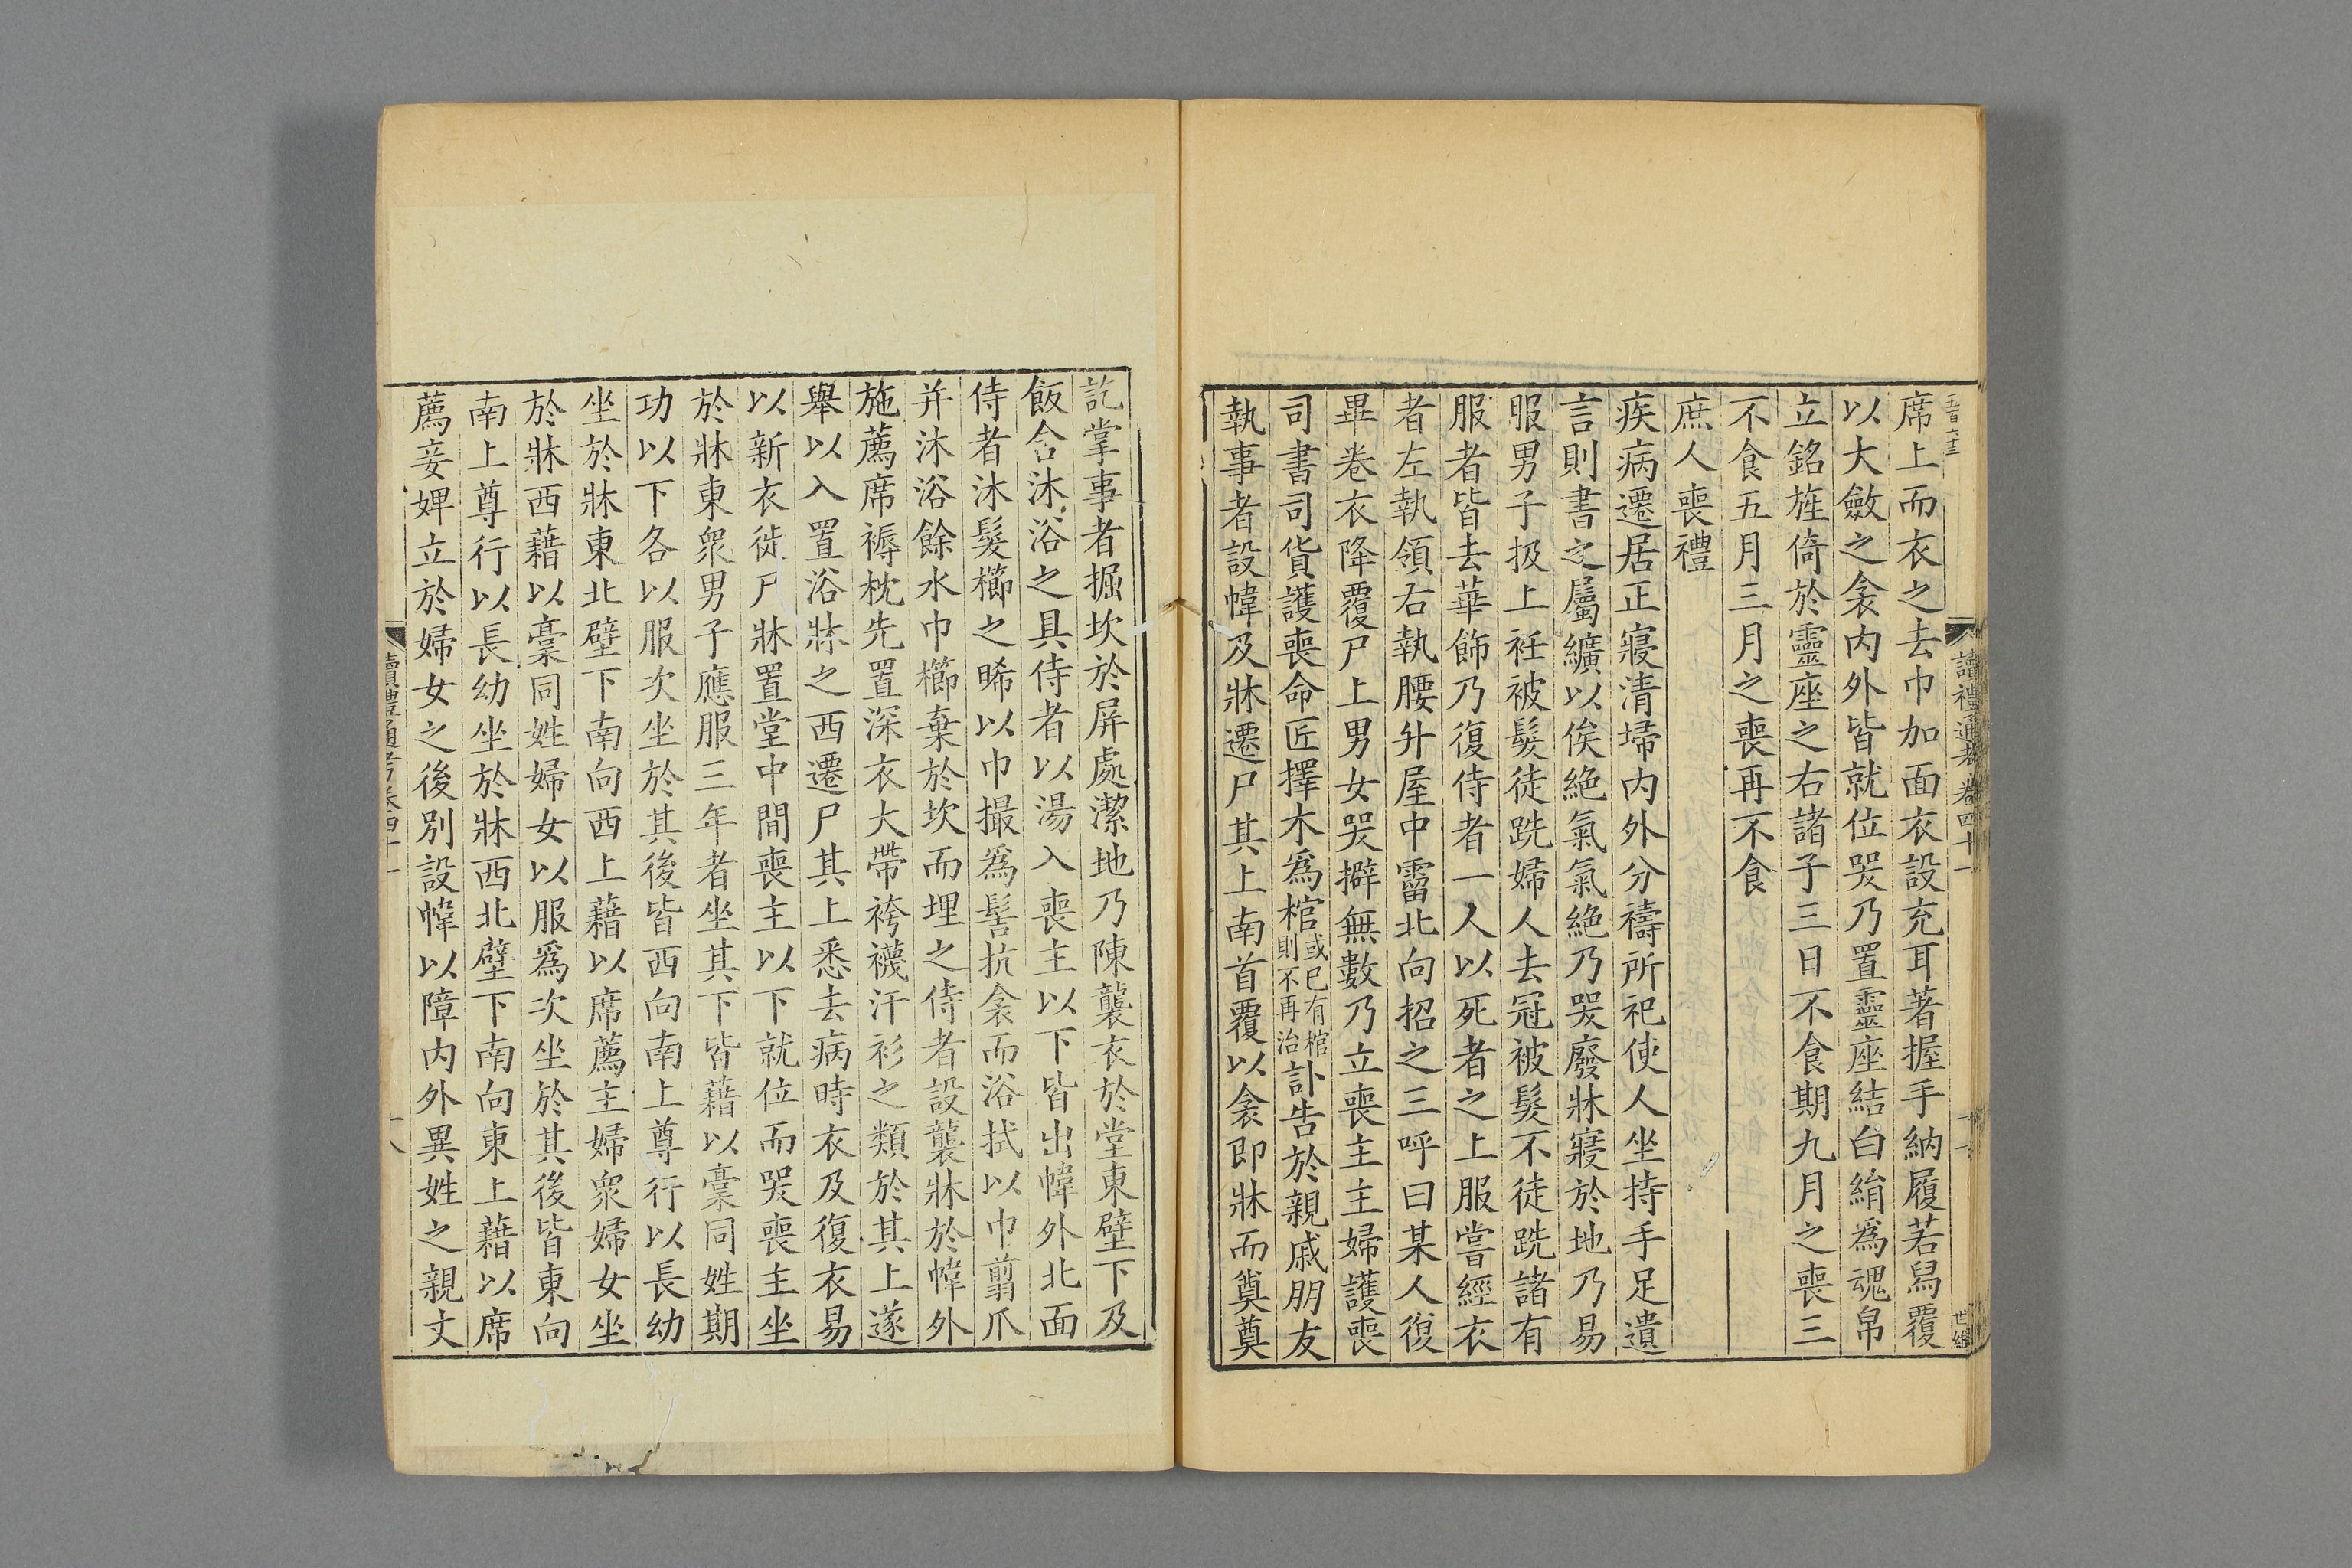 讀禮通考卷四十一
席上而衣之去巾加面衣設充耳著握手納履若舄覆
以大斂之衾内外皆就位哭乃置靈座結白絹爲魂帛
立銘旌倚於靈座之右諸子三日不食期九月之喪三
不食五月三月之喪再不食
庶人喪禮
疾病遷居正寢清埽内外分禱所祀使人坐持手足遺
言則書之屬纊以俟絶氣氣絶乃哭廢牀寢於地乃易
服男子扱上衽被髮徒跣婦人去冠被髮不徒跣諸有
服者皆去華飾乃復侍者一人以死者之上服嘗經衣
者左執領右執腰升屋中霤北向招之三呼曰某人復
畢卷衣降覆尸上男女哭擗無數乃立喪主主婦護喪
司書司貨護喪命匠擇木爲棺或已有棺則不再治訃告於親戚朋友
執事者設幃及牀遷尸其上南首覆以衾即牀而奠奠
訖掌事者掘坎於屏處潔地乃陳襲衣於堂東壁下及
飯含沐浴之具侍者以湯入喪主以下皆出幃外北面
侍者沐髮櫛之晞以巾撮爲髻抗衾而浴拭以巾翦爪
并沐浴餘水巾櫛棄於坎而埋之侍者設襲牀於幃外
施薦席褥枕先置深衣大帶袴襪汗衫之類於其上遂
舉以入置浴牀之西遷尸其上悉去病時衣及復衣易
以新衣徙尸牀置堂中間喪主以下就位而哭喪主坐
於牀東衆男子應服三年者坐其下皆藉以藁同姓期
功以下各以服次坐於其後皆西向南上尊行以長幼
坐於牀東北壁下南向西上藉以席薦主婦衆婦女坐
於牀西藉以藁同姓婦女以服爲次坐於其後皆東向
南上尊行以長幼坐於牀西北壁下南向東上藉以席
薦妾婢立於婦女之後別設幃以障内外異姓之親丈
讀禮通考卷四十一